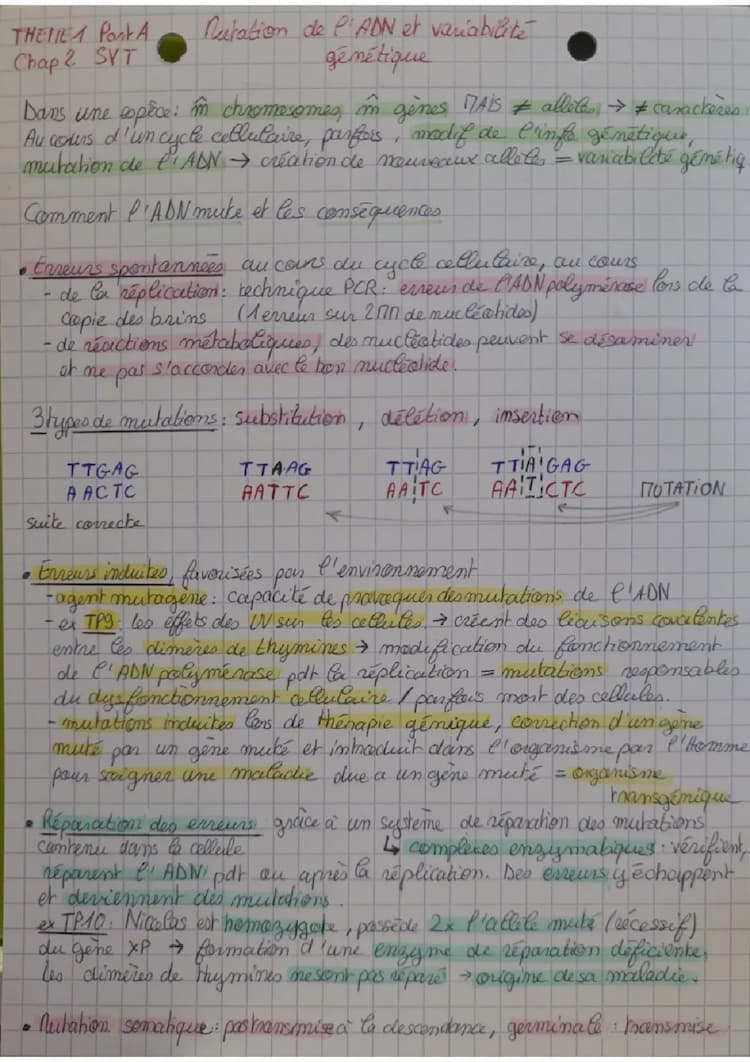 THEME 1 Part A Mutation de l'ADN et variabilité
Chap 2 SVT génétique
Dans une espèce : m̂ chromosomes, m̂ gènes MAIS ≠ allèles → ≠ caractères
Au cours d'un cycle cellulaire, parfois, modif de l'info génétique,
mutation de l'ADN → création de nouveaux allèles = variabilité génétiq
Comment l'ADN mute et les conséquences
• Erreurs spontannées au cours du cycle cellulaire, au cours
- de la réplication : technique PCR : erreur de l'ADN polymérase lors de la
copie des brins (1 erreur sur 2 MM de nucléotides)
- de réactions métaboliques, des nucléotides peuvent se désaminer
et ne pas s'accorder avec le bon nucléotide.
3 types de mutations : substitution, délétion, insertion
TTGAG TTAAG TT¦AG TT¦A¦GAG
AACTC AATTC AA¦TC AA¦T¦CTC MUTATION
suite correcte
• Erreurs induites, favorisées par l'environnement
- agent mutagène : capacité de provoquer des mutations de l'ADN
- ex TP9 : les effets des UV sur les cellules → créent des liaisons covalentes
entre les dimères de thymines → modification du fonctionnement
de l'ADN polymérase pdt la réplication = mutations responsables
du dysfonctionnement cellulaire / parfois mort des cellules.
- mutations induites lors de thérapie génique, correction d'un gène
muté par un gène muté et introduit dans l'organisme par l'Homme
pour soigner une maladie due a un gène muté = organisme
transgénique
• Réparation des erreurs grâce à un système de réparation des mutations
contenu dans la cellule ↳ complexes enzymatiques : vérifient,
réparent l'ADN pdt ou après la réplication. Des erreurs y échappent
et deviennent des mutations.
ex TP10 : Nicolas est homozygote, possède 2x l'allèle muté (récessif)
du gène XP → formation d'une enzyme de réparation déficiente,
les dimères de thymines ne sont pas réparés → origine de sa maladie.
• Mutation somatique : pas transmise à la descendance, germinale : transmise